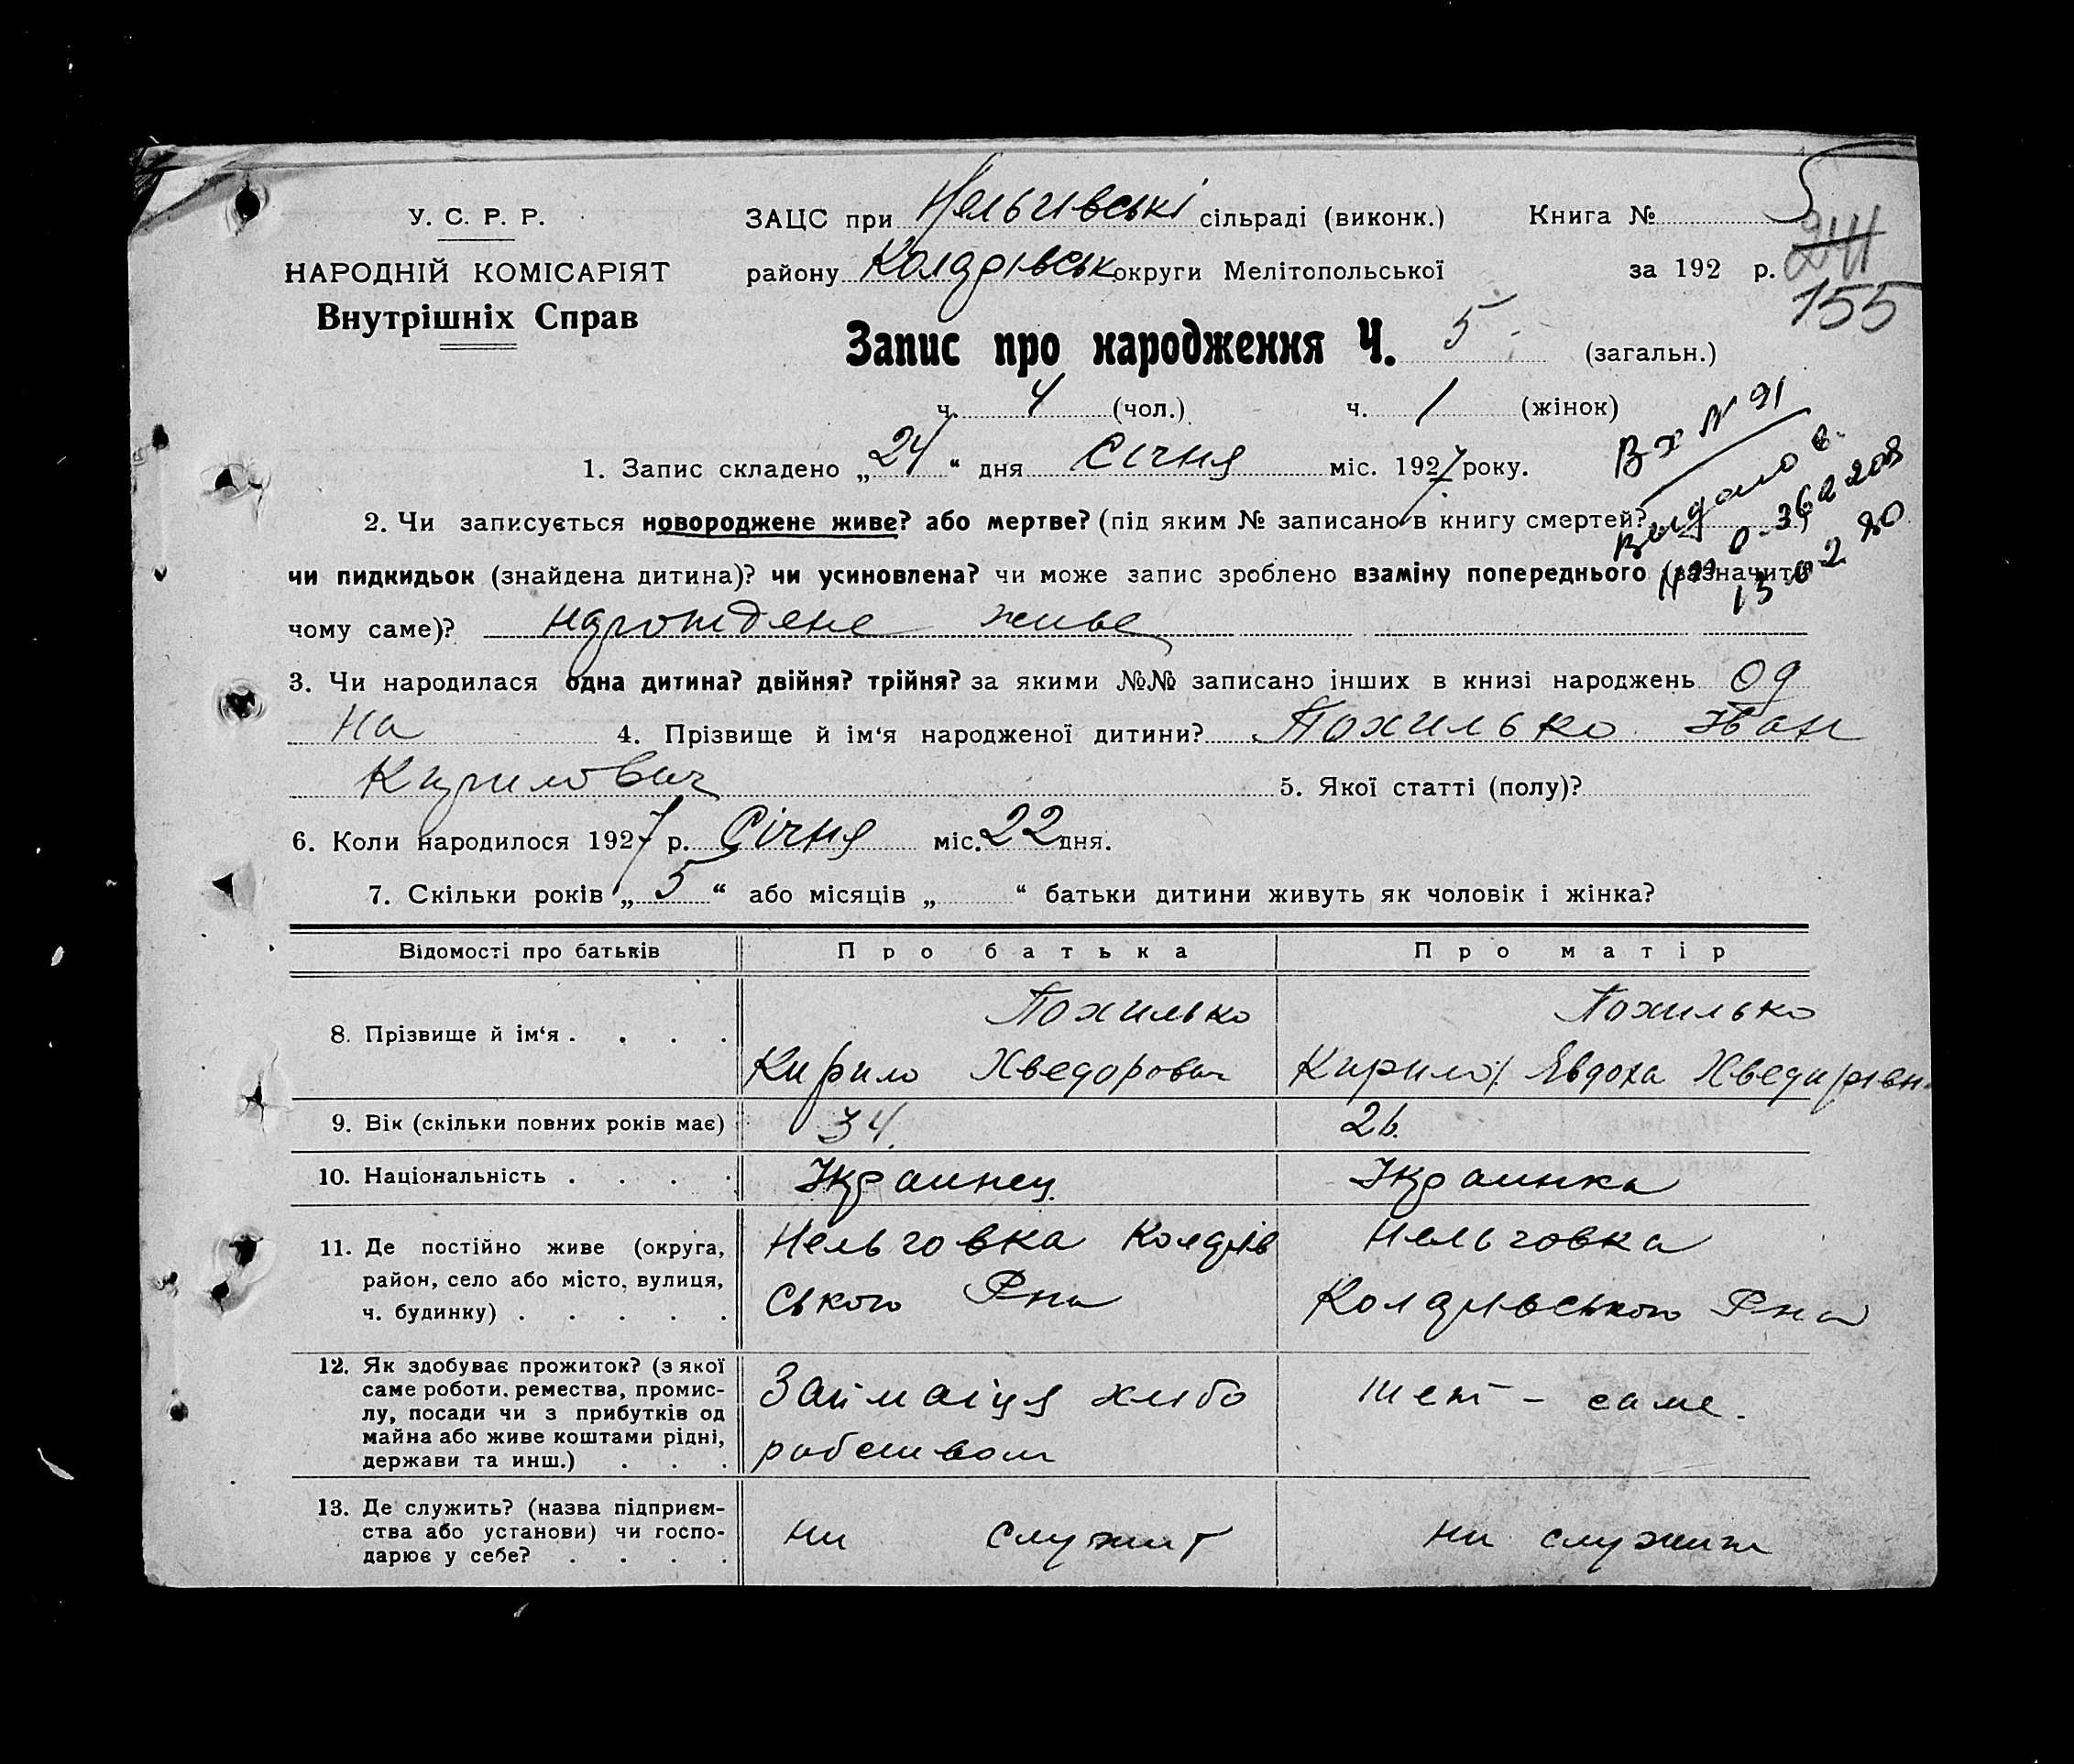 У. С. Р. Р.
НАРОДНІЙ КОМІСАРІЯТ
Внутрішніх Справ
ЗАЦС при Нельгивські сільраді (виконк.)
району Колдрівськ округи Мелітопольської
Книга № 5
за 192 р.
241
155
Запис про народження Ч. 5 (загальн.)
ч. 4 (чол.) ч. 1 (жінок)
Вх № 91
1. Запис складено „24“ дня Січня міс. 1927 року.
2. Чи записується новороджене живе? або мертве? (під яким № записано в книгу смертей?
чи пидкидьок (знайдена дитина)? чи усиновлена? чи може запис зроблено взаміну попереднього (зазначити
чому саме)? живе
3. Чи народилася одна дитина? двійня? трійня? за якими №№ записано інших в книзі народжень од
на 4. Прізвище й ім‘я народженої дитини? Похилько Іван
Кирилович 5. Якої статті (полу)?
6. Коли народилося 1927 р. Січня міс. 22 дня.
7. Скільки років „5“ або місяців „ “ батьки дитини живуть як чоловік і жінка?
Відомості про батьків Про батька Про матір
8. Прізвище й ім‘я . . . . Похилько Похилько
Кирило Хведорович Евдоха
9. Вік (скільки повних років має) 34. 26.
10. Національність . . . . Украинец Украинка
11. Де постійно живе (округа, Нельговка Колдрів Нельговка
район, село або місто, вулиця, ського Рна Колдрівського Рна
ч. будинку) . . . . .
12. Як здобуває прожиток? (з якої
саме роботи, ремества, промис- Займаіця хлібо теж - саме.
лу, посади чи з прибутків од
майна або живе коштами рідні, робством
держави та инш.) . . .
13. Де служить? (назва підприєм-
ства або установи) чи госпо- ни служит ни служит
дарює у себе? . . . .